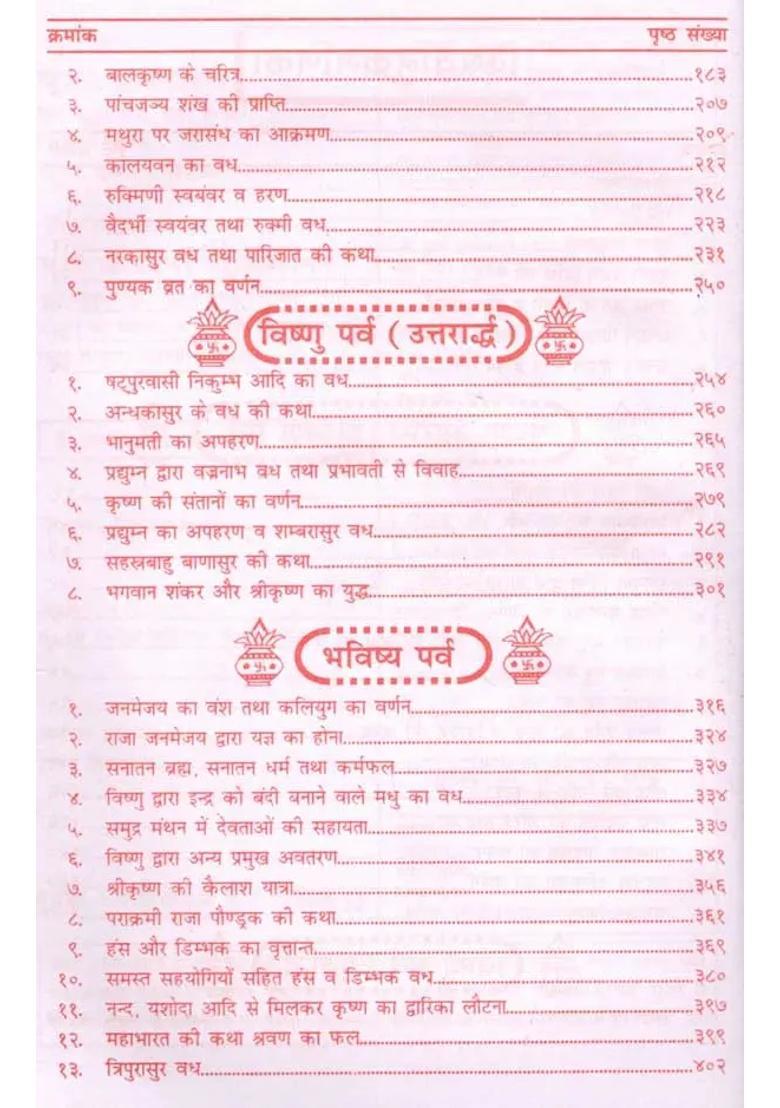 क्रमांक पृष्ठ संख्या
२. बालकृष्ण के चरित्र..........१८३
३. पांचजञ्य शंख की प्राप्ति..........२०७
४. मथुरा पर जरासंध का आक्रमण..........२०९
५. कालयवन का वध..........२१२
६. रुक्मिणी स्वयंवर व हरण..........२१८
७. वैदर्भी स्वयंवर तथा रुक्मी वध..........२२३
८. नरकासुर वध तथा पारिजात की कथा..........२३१
९. पुण्यक व्रत का वर्णन..........२५०
विष्णु पर्व ( उत्तरार्द्ध )
१. षट्पुरवासी निकुम्भ आदि का वध..........२५४
२. अन्धकासुर के वध की कथा..........२६०
३. भानुमती का अपहरण..........२६५
४. प्रद्युम्न द्वारा वज्रनाभ वध तथा प्रभावती से विवाह..........२६९
५. कृष्ण की संतानों का वर्णन..........२७९
६. प्रद्युम्न का अपहरण व शम्बरासुर वध..........२८२
७. सहस्रबाहु बाणासुर की कथा..........२९१
८. भगवान शंकर और श्रीकृष्ण का युद्ध..........३०१
भविष्य पर्व
१. जनमेजय का वंश तथा कलियुग का वर्णन..........३१६
२. राजा जनमेजय द्वारा यज्ञ का होना..........३२४
३. सनातन ब्रह्म, सनातन धर्म तथा कर्मफल..........३२७
४. विष्णु द्वारा इन्द्र को बंदी बनाने वाले मधु का वध..........३३४
५. समुद्र मंथन में देवताओं की सहायता..........३३७
६. विष्णु द्वारा अन्य प्रमुख अवतरण..........३४१
७. श्रीकृष्ण की कैलाश यात्रा..........३५६
८. पराक्रमी राजा पौण्ड्रक की कथा..........३६१
९. हंस और डिम्भक का वृत्तान्त..........३६९
१०. समस्त सहयोगियों सहित हंस व डिम्भक वध..........३८०
११. नन्द, यशोदा आदि से मिलकर कृष्ण का द्वारिका लौटना..........३९७
१२. महाभारत की कथा श्रवण का फल..........३९९
१३. त्रिपुरासुर वध..........४०२